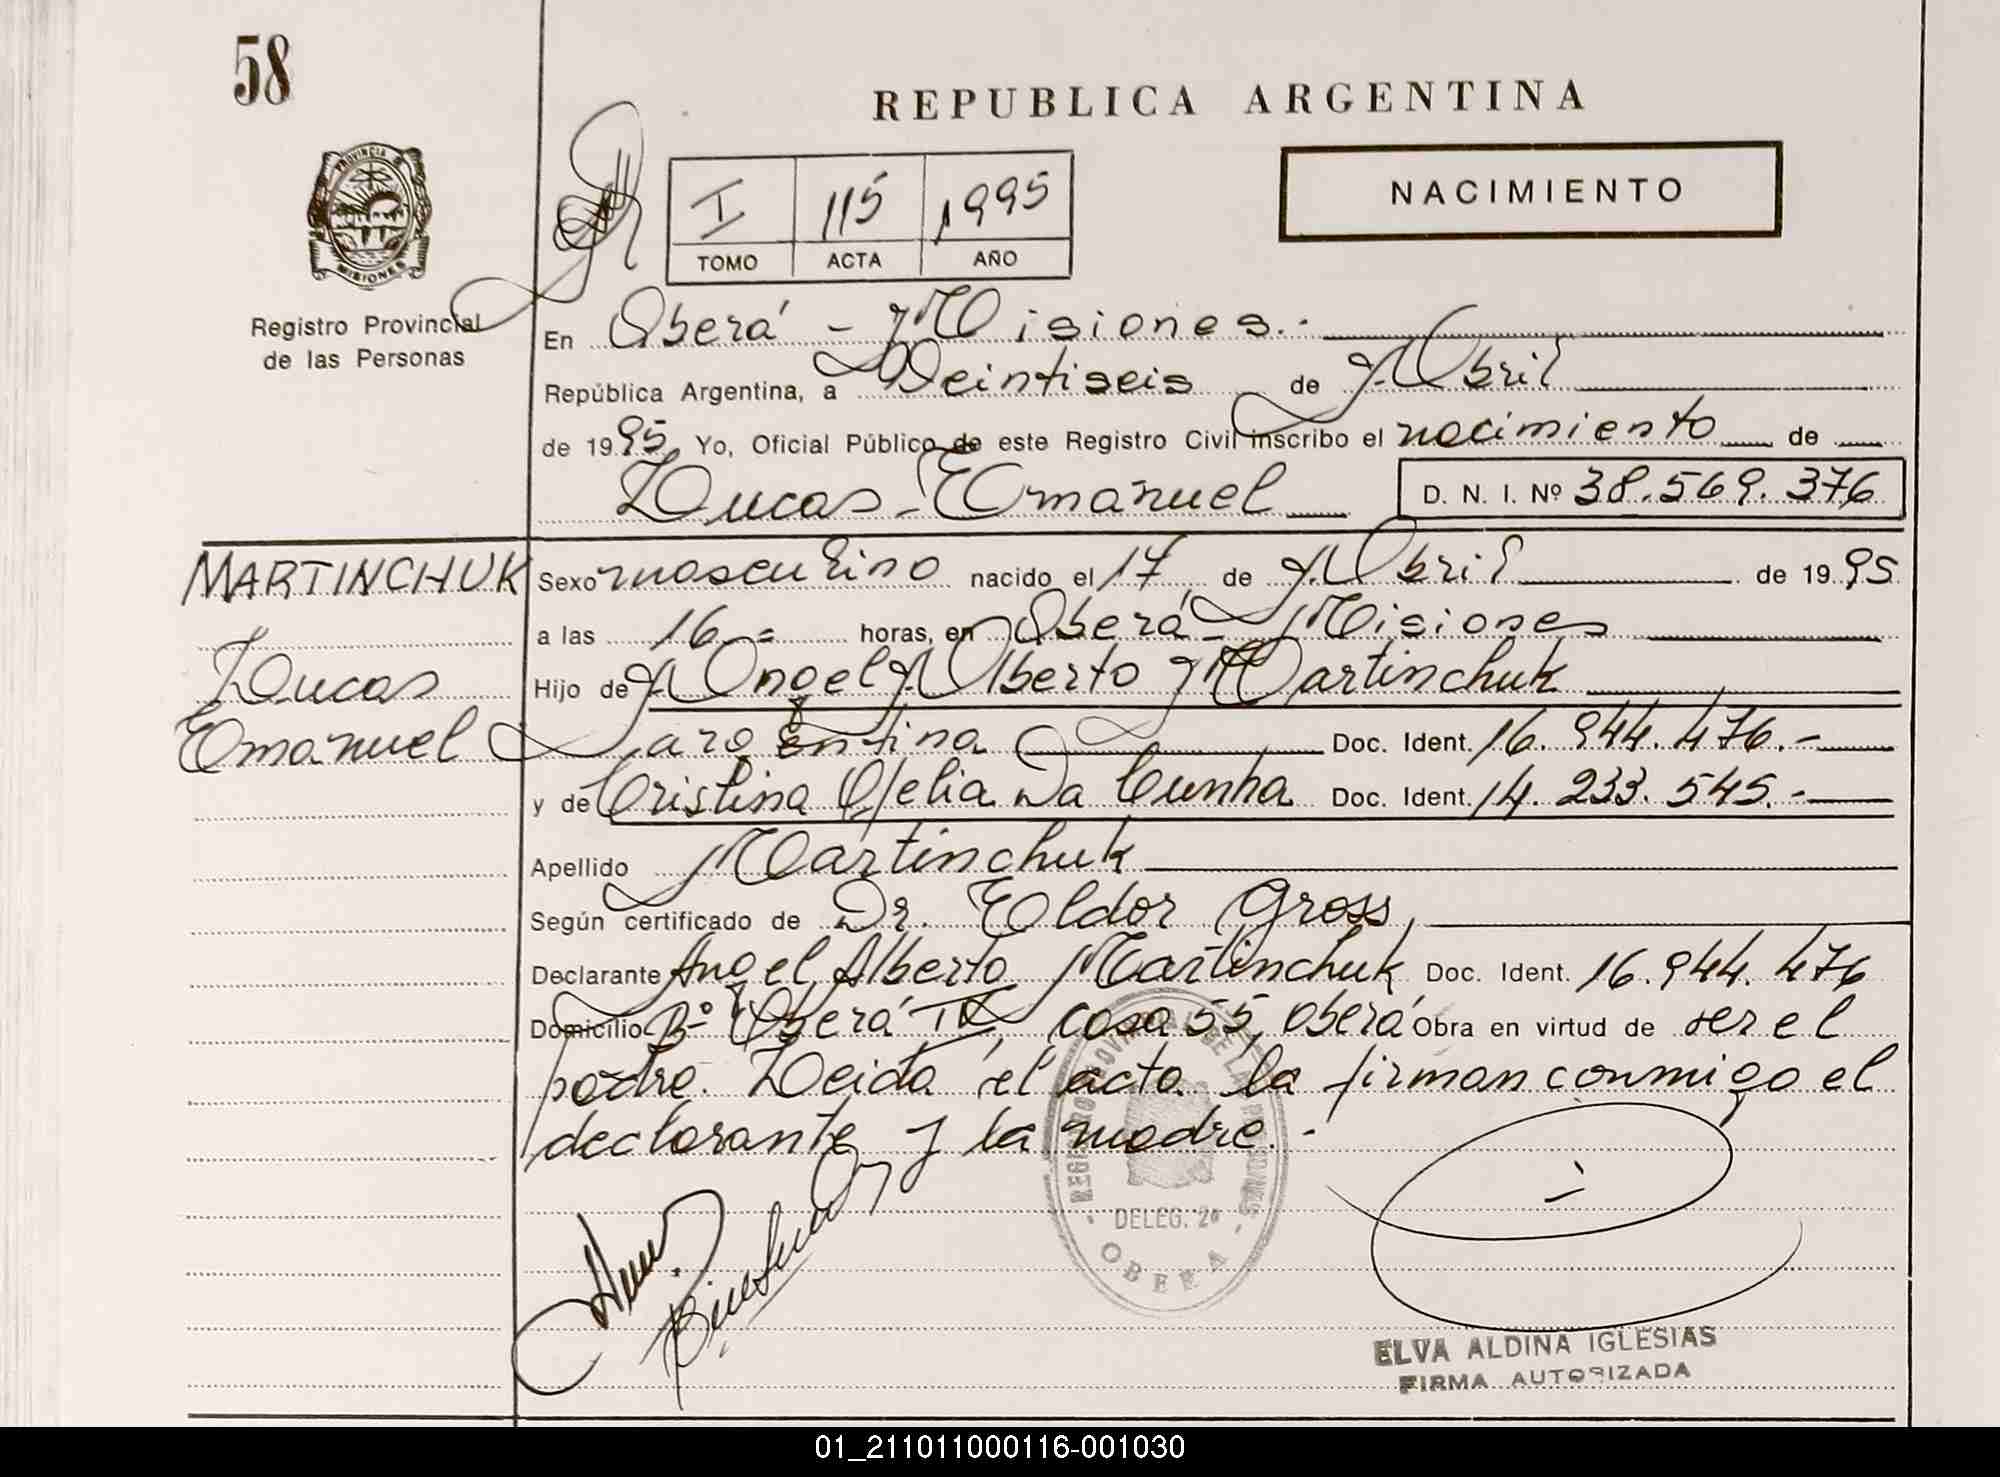 58
REPUBLICA ARGENTINA
NACIMIENTO
I 115 1995
TOMO ACTA AÑO
PROVINCIA DE
MISIONES
Registro Provincial
de las Personas
En Oberá - Misiones.-
República Argentina, a Veintiseis de Abril
de 1995 Yo, Oficial Público de este Registro Civil inscribo el nacimiento de
Lucas - Emanuel D. N. I. Nº 38.569.376
MARTINCHUK
Lucas
Emanuel
Sexo masculino nacido el 17 de Abril de 1995
a las 16 = horas, en Oberá - Misiones
Hijo de Angel Alberto Martinchuk
argentina Doc. Ident. 16.944.476.-
y de Cristina Ofelia Da Cunha Doc. Ident. 14.233.545.-
Apellido Martinchuk
Según certificado de Dr. Eldor Gross,
Declarante Angel Alberto Martinchuk Doc. Ident. 16.944.476
Domicilio Bº Oberá IV, casa 55, Oberá Obra en virtud de ser el
padre. Leida el acta la firman conmigo el
declarante y la madre.-
REGISTRO PROVINCIAL DE LAS PERSONAS
DELEG. 2ª
OBERA
ELVA ALDINA IGLESIAS
FIRMA AUTORIZADA
01_211011000116-001030